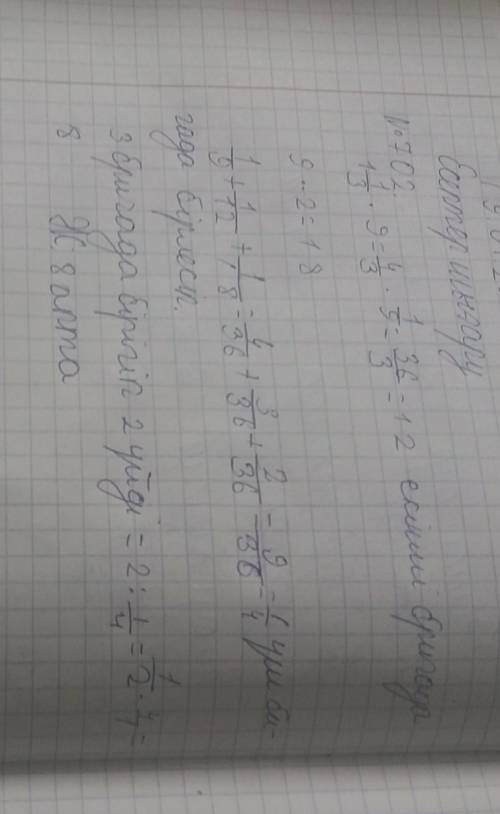 баптер шығару
№702. 1 1/3 · 9 = 4/3 · 9/1 = 36/3 = 12 екінші бригада
9 · 2 = 18
1/9 + 1/12 + 1/18 = 4/36 + 3/36 + 2/36 = 9/36 = 1/4 үш бри-
гада бірлесіп.
3 бригада бірігіп 2 үйді = 2 : 1/4 = 1/2 · 4/1 =
8 Ж 8 апта